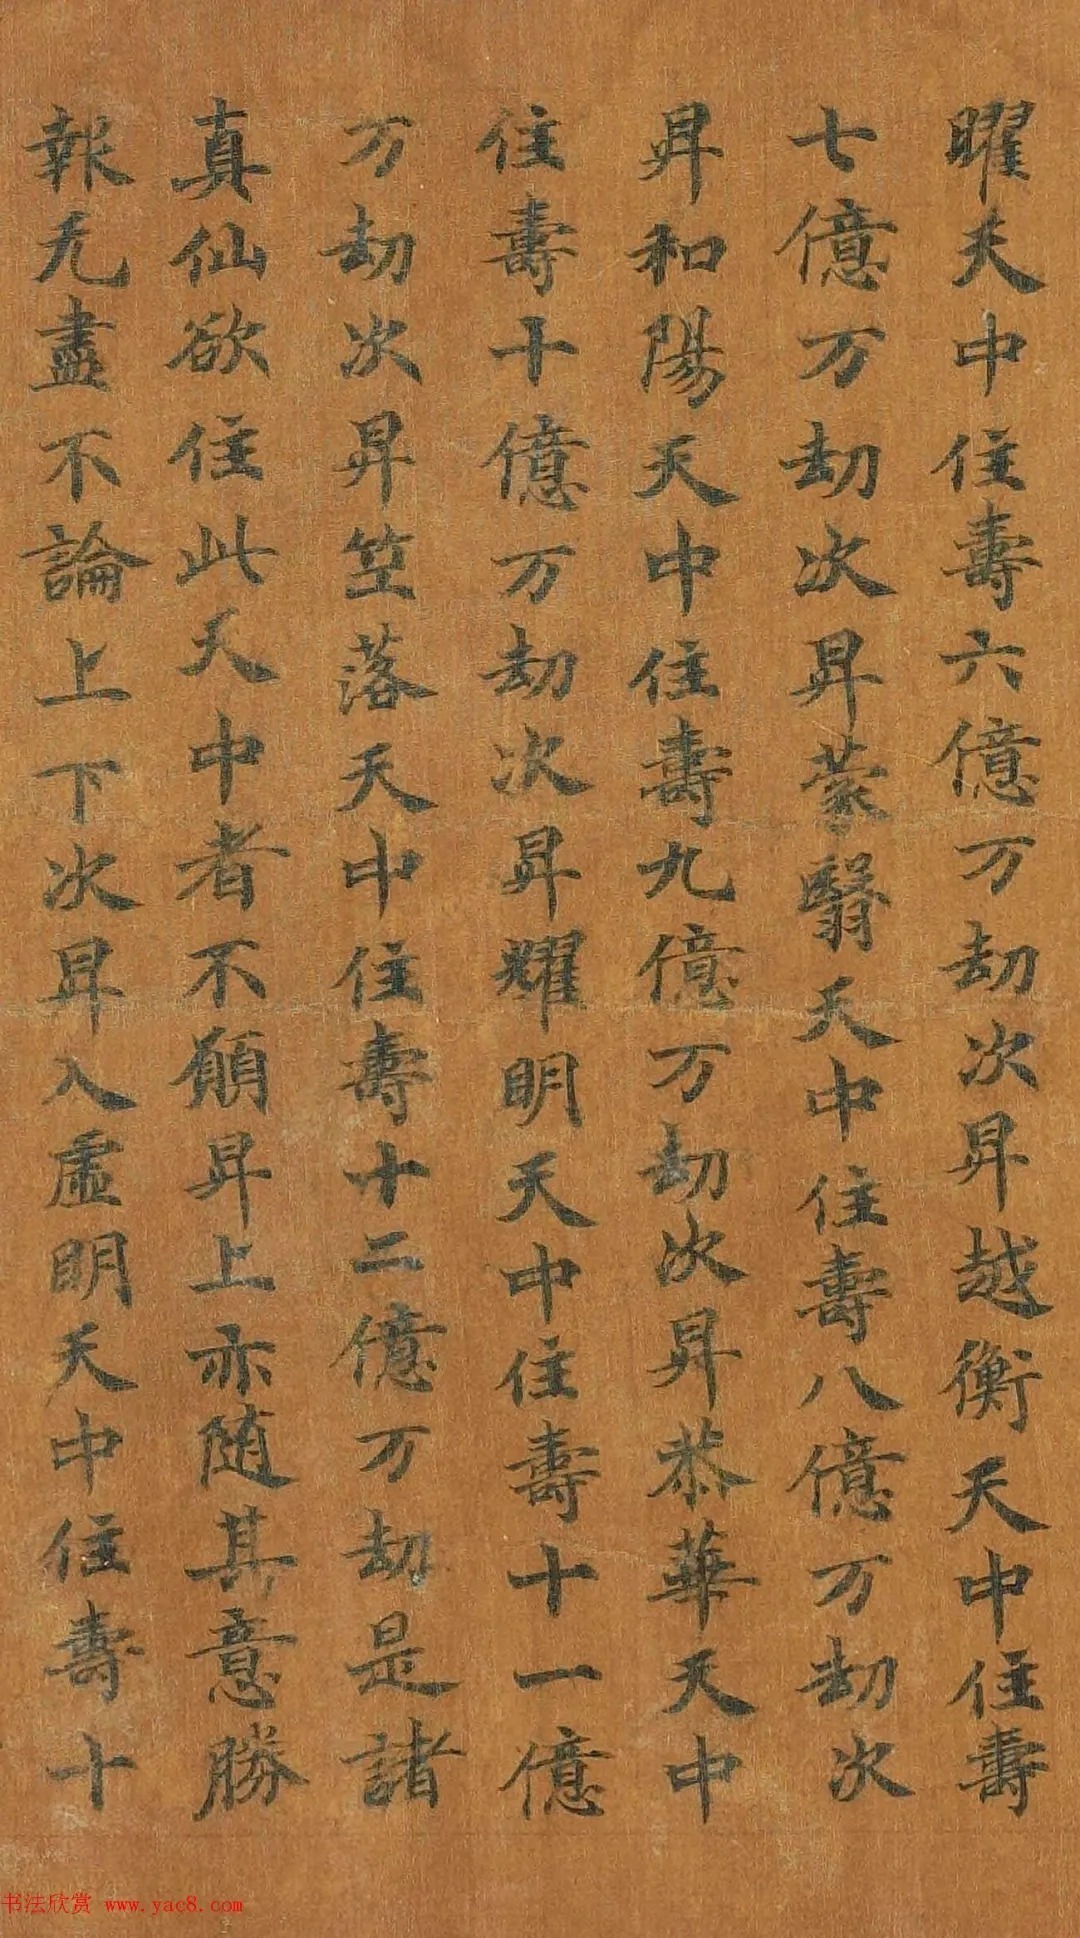 曜天中住壽六億万劫次昇越衡天中住壽
七億万劫次昇蒙翳天中住壽八億万劫次
昇和陽天中住壽九億万劫次昇恭華天中
住壽十億万劫次昇耀明天中住壽十一億
万劫次昇笠落天中住壽十二億万劫是諸
真仙欲住此天中者不願昇上亦随其意勝
報无盡不論上下次昇入虛明天中住壽十
书法欣赏 www.yac8.com